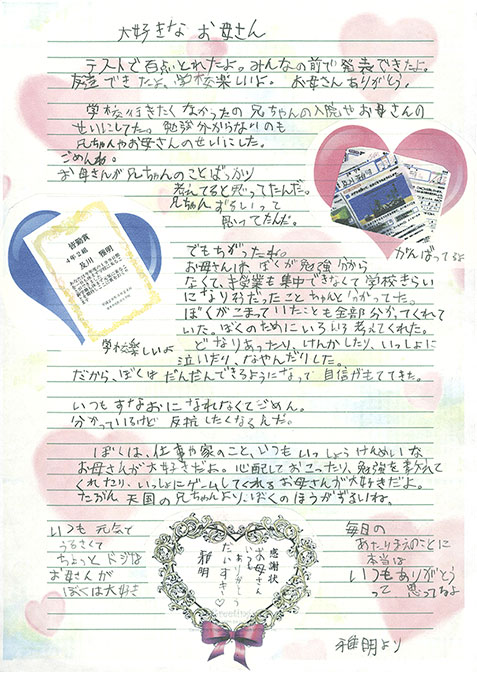 大好きな お母さん
テストで百点とれたよ。みんなの前で発表できたよ。
友達できたよ、学校楽しいよ。 お母さんありがとう。
学校行きたくなかったの兄ちゃんの入院やお母さんの
せいにしてた。勉強分からないのも
兄ちゃんやお母さんのせいにした。
ごめんね。
お母さんが兄ちゃんのことばっかり
考えてると思ってたんだ。
兄ちゃんずるいって
思ってたんだ。
がんばってるよ
皆勤賞
4年2組
及川 雅明
学校楽しいよ
でもちがったね。
お母さんは、ぼくが勉強分から
なくて、授業も集中できなくて学校きらい
になりそうだったことちゃんと分かってた。
ぼくがこまっていたことも全部分かってくれて
いた。ぼくのためにいろいろ考えてくれた。
どなりあったり、けんかしたり、いっしょに
泣いたり、なやんだりした。
だから、ぼくはだんだんできるようになって自信がもててきた。
いつもすなおになれなくてごめん。
分かっているけど反抗したくなるんだ。
ぼくは、仕事や家のこと、いつもいっしょうけんめいな
お母さんが大好きだよ。心配しておこったり、勉強を教えて
くれたり、いっしょにゲームしてくれるお母さんが大好きだよ。
たぶん天国の兄ちゃんより、ぼくのほうがずるいね。
いつも元気で
うるさくて
ちょっとドジな
お母さんが
ぼくは大好き
感謝状
お母さん
いつも
ありがとう
だいすき
雅明
毎日の
あたりまえのことに
本当は
いつもありがとう
って思ってるよ
雅明より